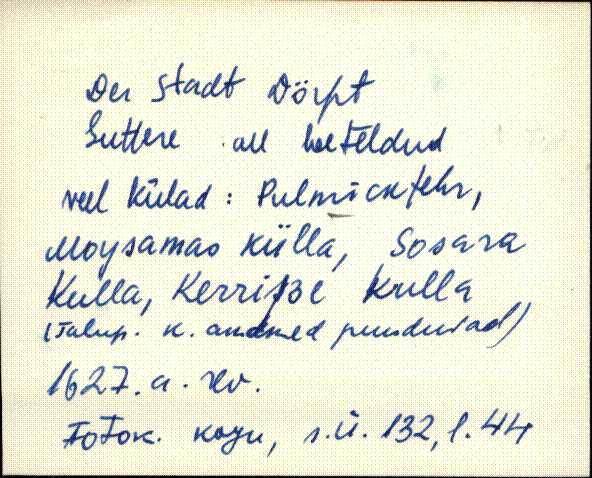 Der Stadt Dörpt
Guttere all loeteldud
veel külad: Pulmückfehr,
Moysamas külla, Sosara
Kulla, Kerriße Kulla
(Talup. k. andmed puuduvad)
1627. a. rev.
Fotok. kogu, s.ü. 132, l. 44